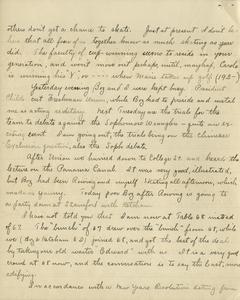 others don't get a chance to skate. Just at present I don't be-
lieve that all four of us together know as much skating as you
did. The faculty of cup-winning seems to reside in your
generation, and won't move out perhaps until, maybe, Carola
is winning his "Y", or when Marie takes up golf (192-)
Yesterday evening Boz and I were kept busy. President
out Freshman Union, while Boz had to preside and
in acting secretary. Next Tuesday are the trials for
the team to debate against the Sophomores Wranglers - quite an ex-
citing event. I am going out, the trials being on the Chinese
Exclusion question, also the Soph debate.
After Union we hurried down to College St. and heard the
lecture on the Panama Canal. It was very good, illustrated,
but Boz had been Rowing and myself skating all afternoon, which
made us yawny. Today poor Boz after Rowing is to go to
party down at Stamford with
I have not told you that I am now at Table 68 instead
of 67. The "bunch" of 67 drew over the "bunch" from 68, while
we joined 68, and got the best of the deal
by taking our old waiter Edward with us. It is a very good
crowd at 68 now, and the conversation is to say the least, more
edifying.
In accordance with a New Years Resolution dating from